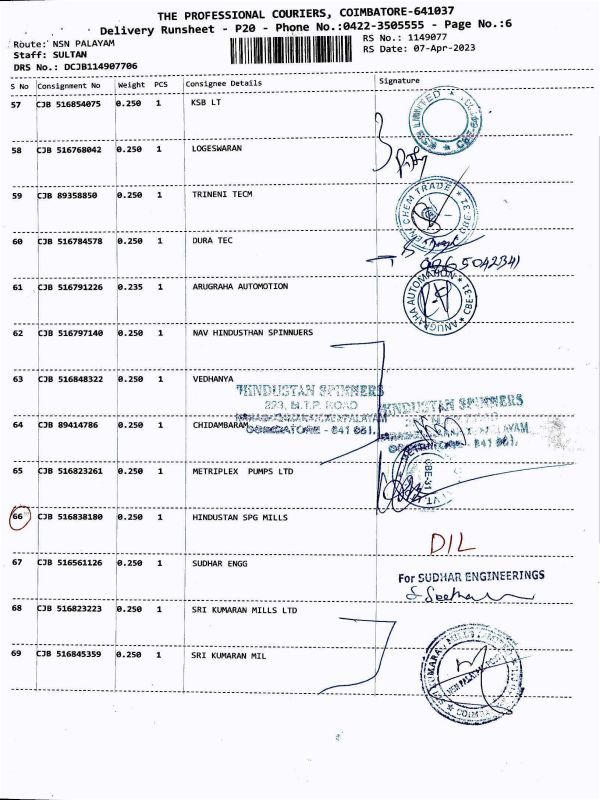 THE PROFESSIONAL COURIERS, COIMBATORE-641037
Delivery Runsheet - P20 - Phone No.:0422-3505555 - Page No.:6
Route: NSN PALAYAM
RS No.: 1149077
Staff: SULTAN
RS Date: 07-Apr-2023
DRS No.: DCJB114907706
S No Consignment No Weight PCS Consignee Details Signature
57 CJB 516854075 0.250 1 KSB LT
KSB LIMITED
58 CJB 516768042 0.250 1 LOGESWARAN
59 CJB 89358850 0.250 1 TRINENI TECM
CHEM TRADE
60 CJB 516784578 0.250 1 DURA TEC
61 CJB 516791226 0.235 1 ARUGRAHA AUTOMOTION
ANUGRAHA AUTOMATION * CBE-31
62 CJB 516797140 0.250 1 NAV HINDUSTHAN SPINNUERS
63 CJB 516848322 0.250 1 VEDHANYA
HINDUSTAN SPINNERS
223, M.T.P. ROAD
COIMBATORE - 641 031.
HINDUSTAN SPINNERS
64 CJB 89414786 0.250 1 CHIDAMBARAM
65 CJB 516823261 0.250 1 METRIPLEX PUMPS LTD
CBE-31
66 CJB 516838180 0.250 1 HINDUSTAN SPG MILLS
DIL
67 CJB 516561126 0.250 1 SUDHAR ENGG
For SUDHAR ENGINEERINGS
68 CJB 516823223 0.250 1 SRI KUMARAN MILLS LTD
69 CJB 516845359 0.250 1 SRI KUMARAN MIL